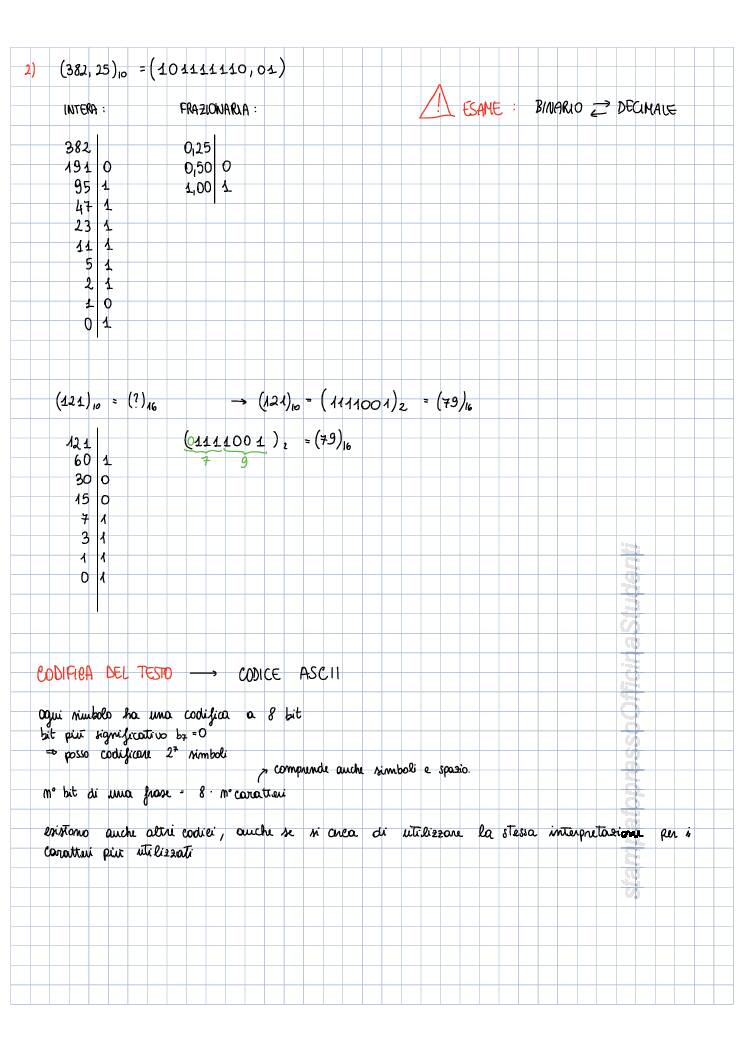 2) (382,25)₁₀ = (101111110,01)
INTERA : FRAZIONARIA : ⚠ ESAME : BINARIO ⇄ DECIMALE
382 | 0,25 |
191 | 0 0,50 | 0
95 | 1 1,00 | 1
47 | 1
23 | 1
11 | 1
5 | 1
2 | 1
1 | 0
0 | 1
(121)₁₀ = (?)₁₆ → (121)₁₀ = (1111001)₂ = (79)₁₆
121 | (01111001)₂ = (79)₁₆
60 | 1 7 9
30 | 0
15 | 0
7 | 1
3 | 1
1 | 1
0 | 1
CODIFICA DEL TESTO → CODICE ASCII
ogni simbolo ha una codifica a 8 bit
bit più significativo b₇=0
⇒ posso codificare 2⁷ simboli
↗ comprende anche simboli e spazio.
n° bit di una frase = 8 · n° caratteri
esistono anche altri codici, anche se si cerca di utilizzare la stessa interpretazione per i
caratteri più utilizzati
stampatoppressoOfficinaStudenti